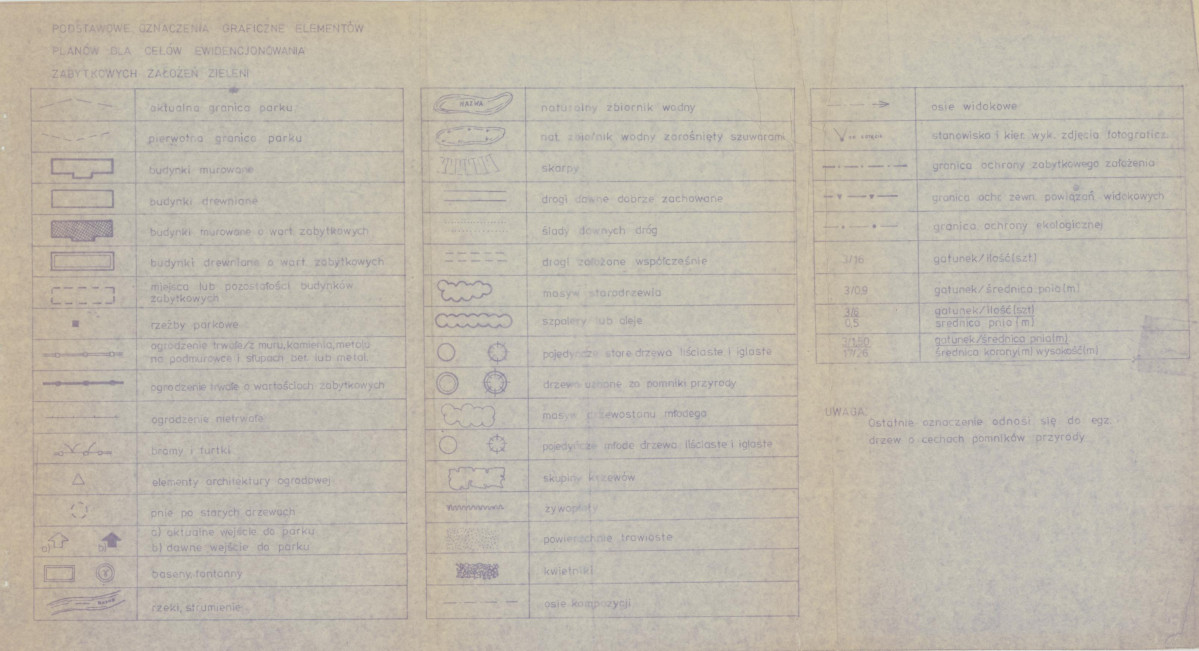 PODSTAWOWE OZNACZENIA GRAFICZNE ELEMENTÓW
PLANÓW DLA CELÓW EWIDENCJONOWANIA
ZABYTKOWYCH ZAŁOŻEŃ ZIELENI
aktualna granica parku
pierwotna granica parku
budynki murowane
budynki drewniane
budynki murowane o wart. zabytkowych
budynki drewniane o wart. zabytkowych
miejsca lub pozostałości budynków
zabytkowych
rzeźby parkowe
ogrodzenie trwałe/z muru, kamienia, metalu
na podmurówce i słupach bet. lub metal.
ogrodzenie trwałe o wartościach zabytkowych
ogrodzenie nietrwałe
bramy i furtki
elementy architektury ogrodowej
pnie po starych drzewach
a) b) a) aktualne wejście do parku
b) dawne wejście do parku
baseny, fontanny
rzeki, strumienie
NAZWA naturalny zbiornik wodny
nat. zbiornik wodny zarośnięty szuwarami
skarpy
drogi dawne dobrze zachowane
ślady dawnych dróg
drogi założone współcześnie
masyw starodrzewia
szpalery lub aleje
pojedyńcze stare drzewa liściaste i iglaste
drzewa uznane za pomniki przyrody
masyw drzewostanu młodego
pojedyńcze młode drzewa liściaste i iglaste
skupiny krzewów
żywopłoty
powierzchnie trawiaste
kwietniki
osie kompozycji
osie widokowe
stanowisko i kier. wyk. zdjęcia fotograficz.
granica ochrony zabytkowego założenia
granica ochr. zewn. powiązań widokowych
granica ochrony ekologicznej
3/16 gatunek/ilość(szt)
3/0,9 gatunek/średnica pnia(m)
3/8 gatunek/ilość(szt)
0,5 średnica pnia (m)
3/1,50 gatunek/średnica pnia(m)
17/26 średnica korony(m) wysokość(m)
UWAGA:
Ostatnie oznaczenie odnosi się do egz.
drzew o cechach pomników przyrody